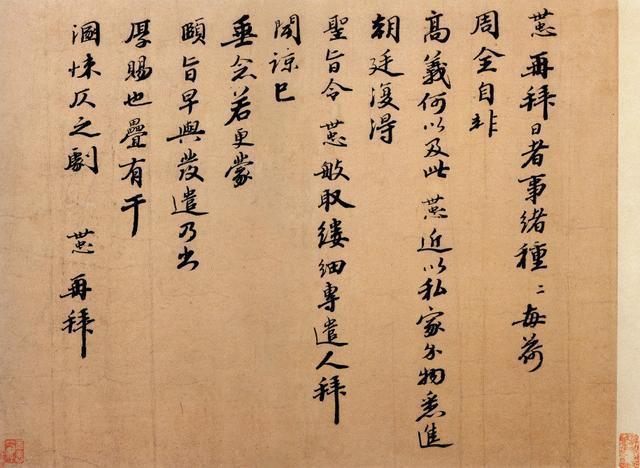 再拜日者事緒種〻每荷
周全自非
高義何以及此 近以私家物悉進
朝廷復得
聖旨令 取縷細專遣人拜
聞諒已
垂念若更蒙
頤旨早與發遣乃出
厚賜也疊有干
溷悚仄之劇 再拜